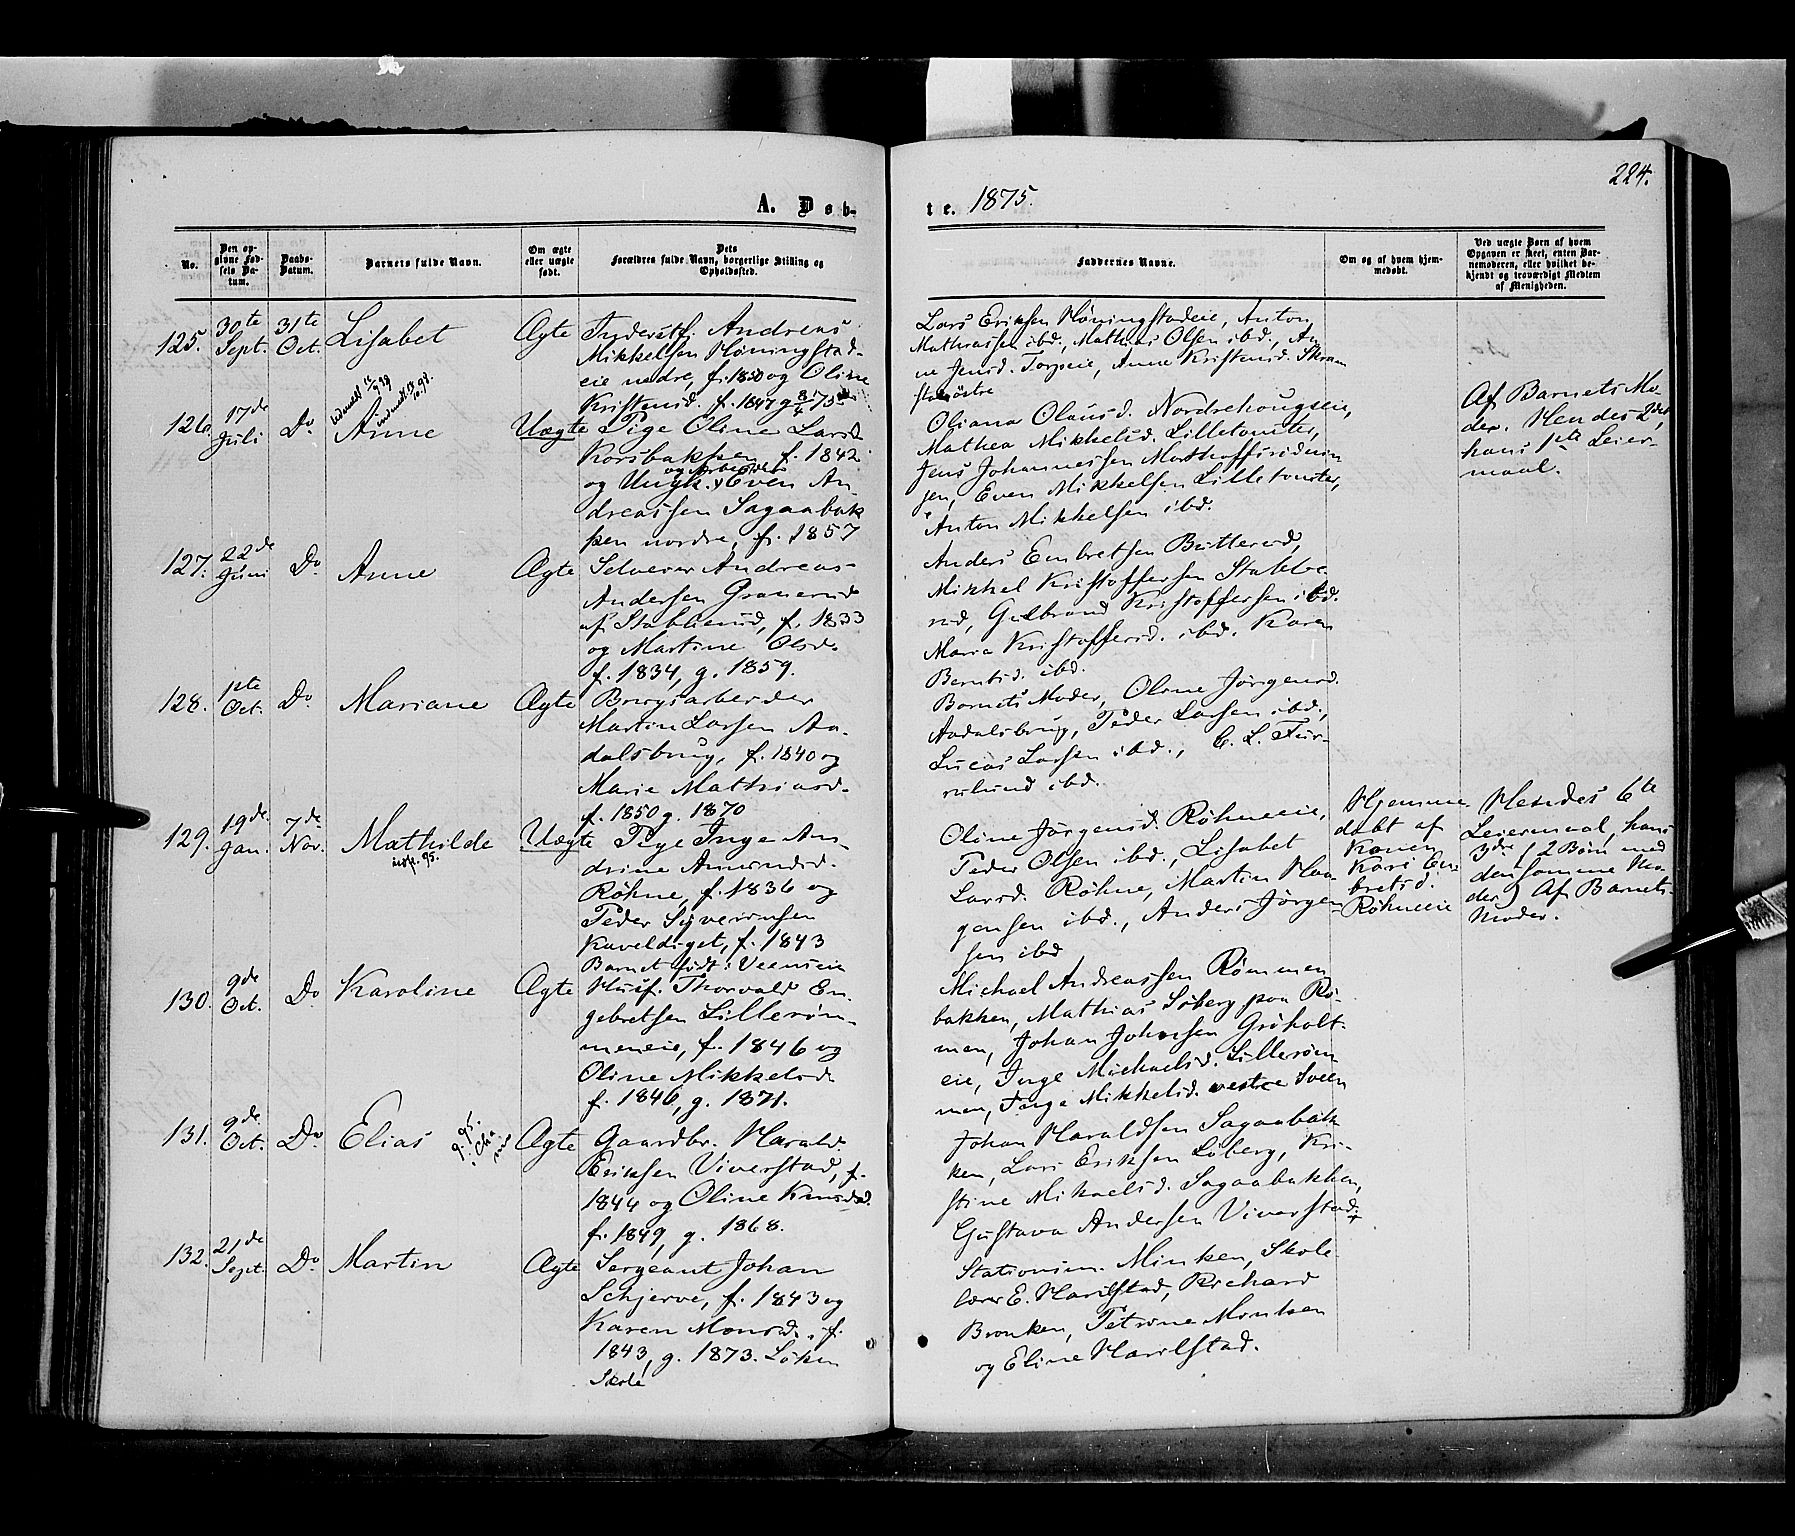 224.
A. Døb-
te. 1875.
No.
Den op-
givne Fød-
sels Da-
tum.
Daabs-
Datum.
Barnets fulde Navn.
Om ægte
eller uægte
født.
Dets
Forældres fulde Navn, borgerlige Stilling og
Opholdssted.
Faddernes Navne.
Om og af hvem hjem-
medøbt.
Ved uægte Børn af hvem
Opgaven er skeet, enten Bar-
nemoderen, eller hvilket be-
kjendt og troværdigt Medlem
af Menigheden.
125.
30te
Sept.
31te
Oct.
Lisabet
Ægte
Inderstf. Andreas
Mikkelsen Høningstad-
eie nedre, f. 1850 og Oline
Kristensd. f. 1847 g 8/4 75
Lars Eriksen Høningstadeie, Anton
Mathiassen ibd., Mathias Olsen ibd., An-
ne Jensd. Torpseie, Anne Kristensd. Skram-
stad østre
126.
17de
Juli
Do
Anne
Uægte
Pige Oline Larsd.
Korsbakken f. 1842
og Arbeider
og Ungk. Even An-
dreassen Sagaabak-
ken nordre, f. 1857
Oliana Olausd. Nordrehougseie,
Mathea Mikkelsd. Lilletomter,
Jens Johannessen
jen, Even Mikkelsen Lilletomter,
Anton Mikkelsen ibd.
Af Barnets Mo-
der. Hendes 2det
hans 1ste Leier-
maal.
127.
22de
Juni
Do
Anne
Ægte
Selveier Andreas
Andersen Granerud
af Stabberud, f. 1833
og Martine Olsd.
f. 1834, g. 1859.
Anders Embretsen Butterud,
Mikkel Kristoffersen Stabbe-
rud, Gulbrand Kristoffersen ibd.
Maria Kristoffersd. ibd. Karen
Berntsd. ibd.
128.
1ste
Oct.
Do.
Mariane
Ægte
Brugsarbeider
Martin Larsen Aa-
dalsbrug, f. 1840 og
Marie Mathiasd.
f. 1850 g. 1870
Barnets Moder, Oline Jörgensd.
Aadalsbrug, Peder Larsen ibd.,
Lucas Larsen ibd., C. L. Fur-
rulund ibd.
129.
19de
Jan.
7de
Nov.
Mathilde
Uægte
Pige Inge An-
drine Amundsd.
Røhne, f. 1836 og
Peder Syversen
Kaveldiget, f. 1843
Barnet født i Veenseie
Oline Jørgensd. Röhneeie,
Peder Olsen ibd., Lisabet
Larsd. Røhne, Martin Haa-
gensen ibd., Anders Jörgen-
sen ibd
Hjemme
døbt af
Konen
Kari Em-
bretsd.
Röhneeie
Hendes 6te
Leiermaal, hans
3die (2 Børn med
densamme Mo-
der) Af Barnets
Moder.
130.
9de
Oct.
Do
Karoline
Ægte
Husf. Thorvald En-
gebretsen Lillerøm-
meneie, f. 1846 og
Oline Mikkelsd.
f. 1846, g. 1871.
Michael Andreassen Rømmen
bakken, Mathias Løberg paa Rø-
men, Johan Johnsen Gröholt-
eie, Inge Michaelsd. Lillerøm-
men, Inge Mikkelsd. vestre Sveen
131.
9de
Oct.
Do.
Elias
Ægte
Gaardbr. Harald
Eriksen Viverstad, f.
1844 og Oline Knudsd.
f. 1849, g. 1868.
Johan Haraldsen Sagaabak-
ken, Lars Eriksen Løberg, Kri-
stine Mikaelsd. Sagaabakken,
Gustava Andersen Viverstad.
132.
21de
Sept.
Do.
Martin
Ægte
Sergeant Johan
Schjerve, f. 1843 og
Karen Monsd. f.
1843, g. 1873. Løken
Skole
Stationsm. Minken, Skole-
lærer E. Harilstad, Richard
Bronken, Petrine Monken
og Eline Harilstad.